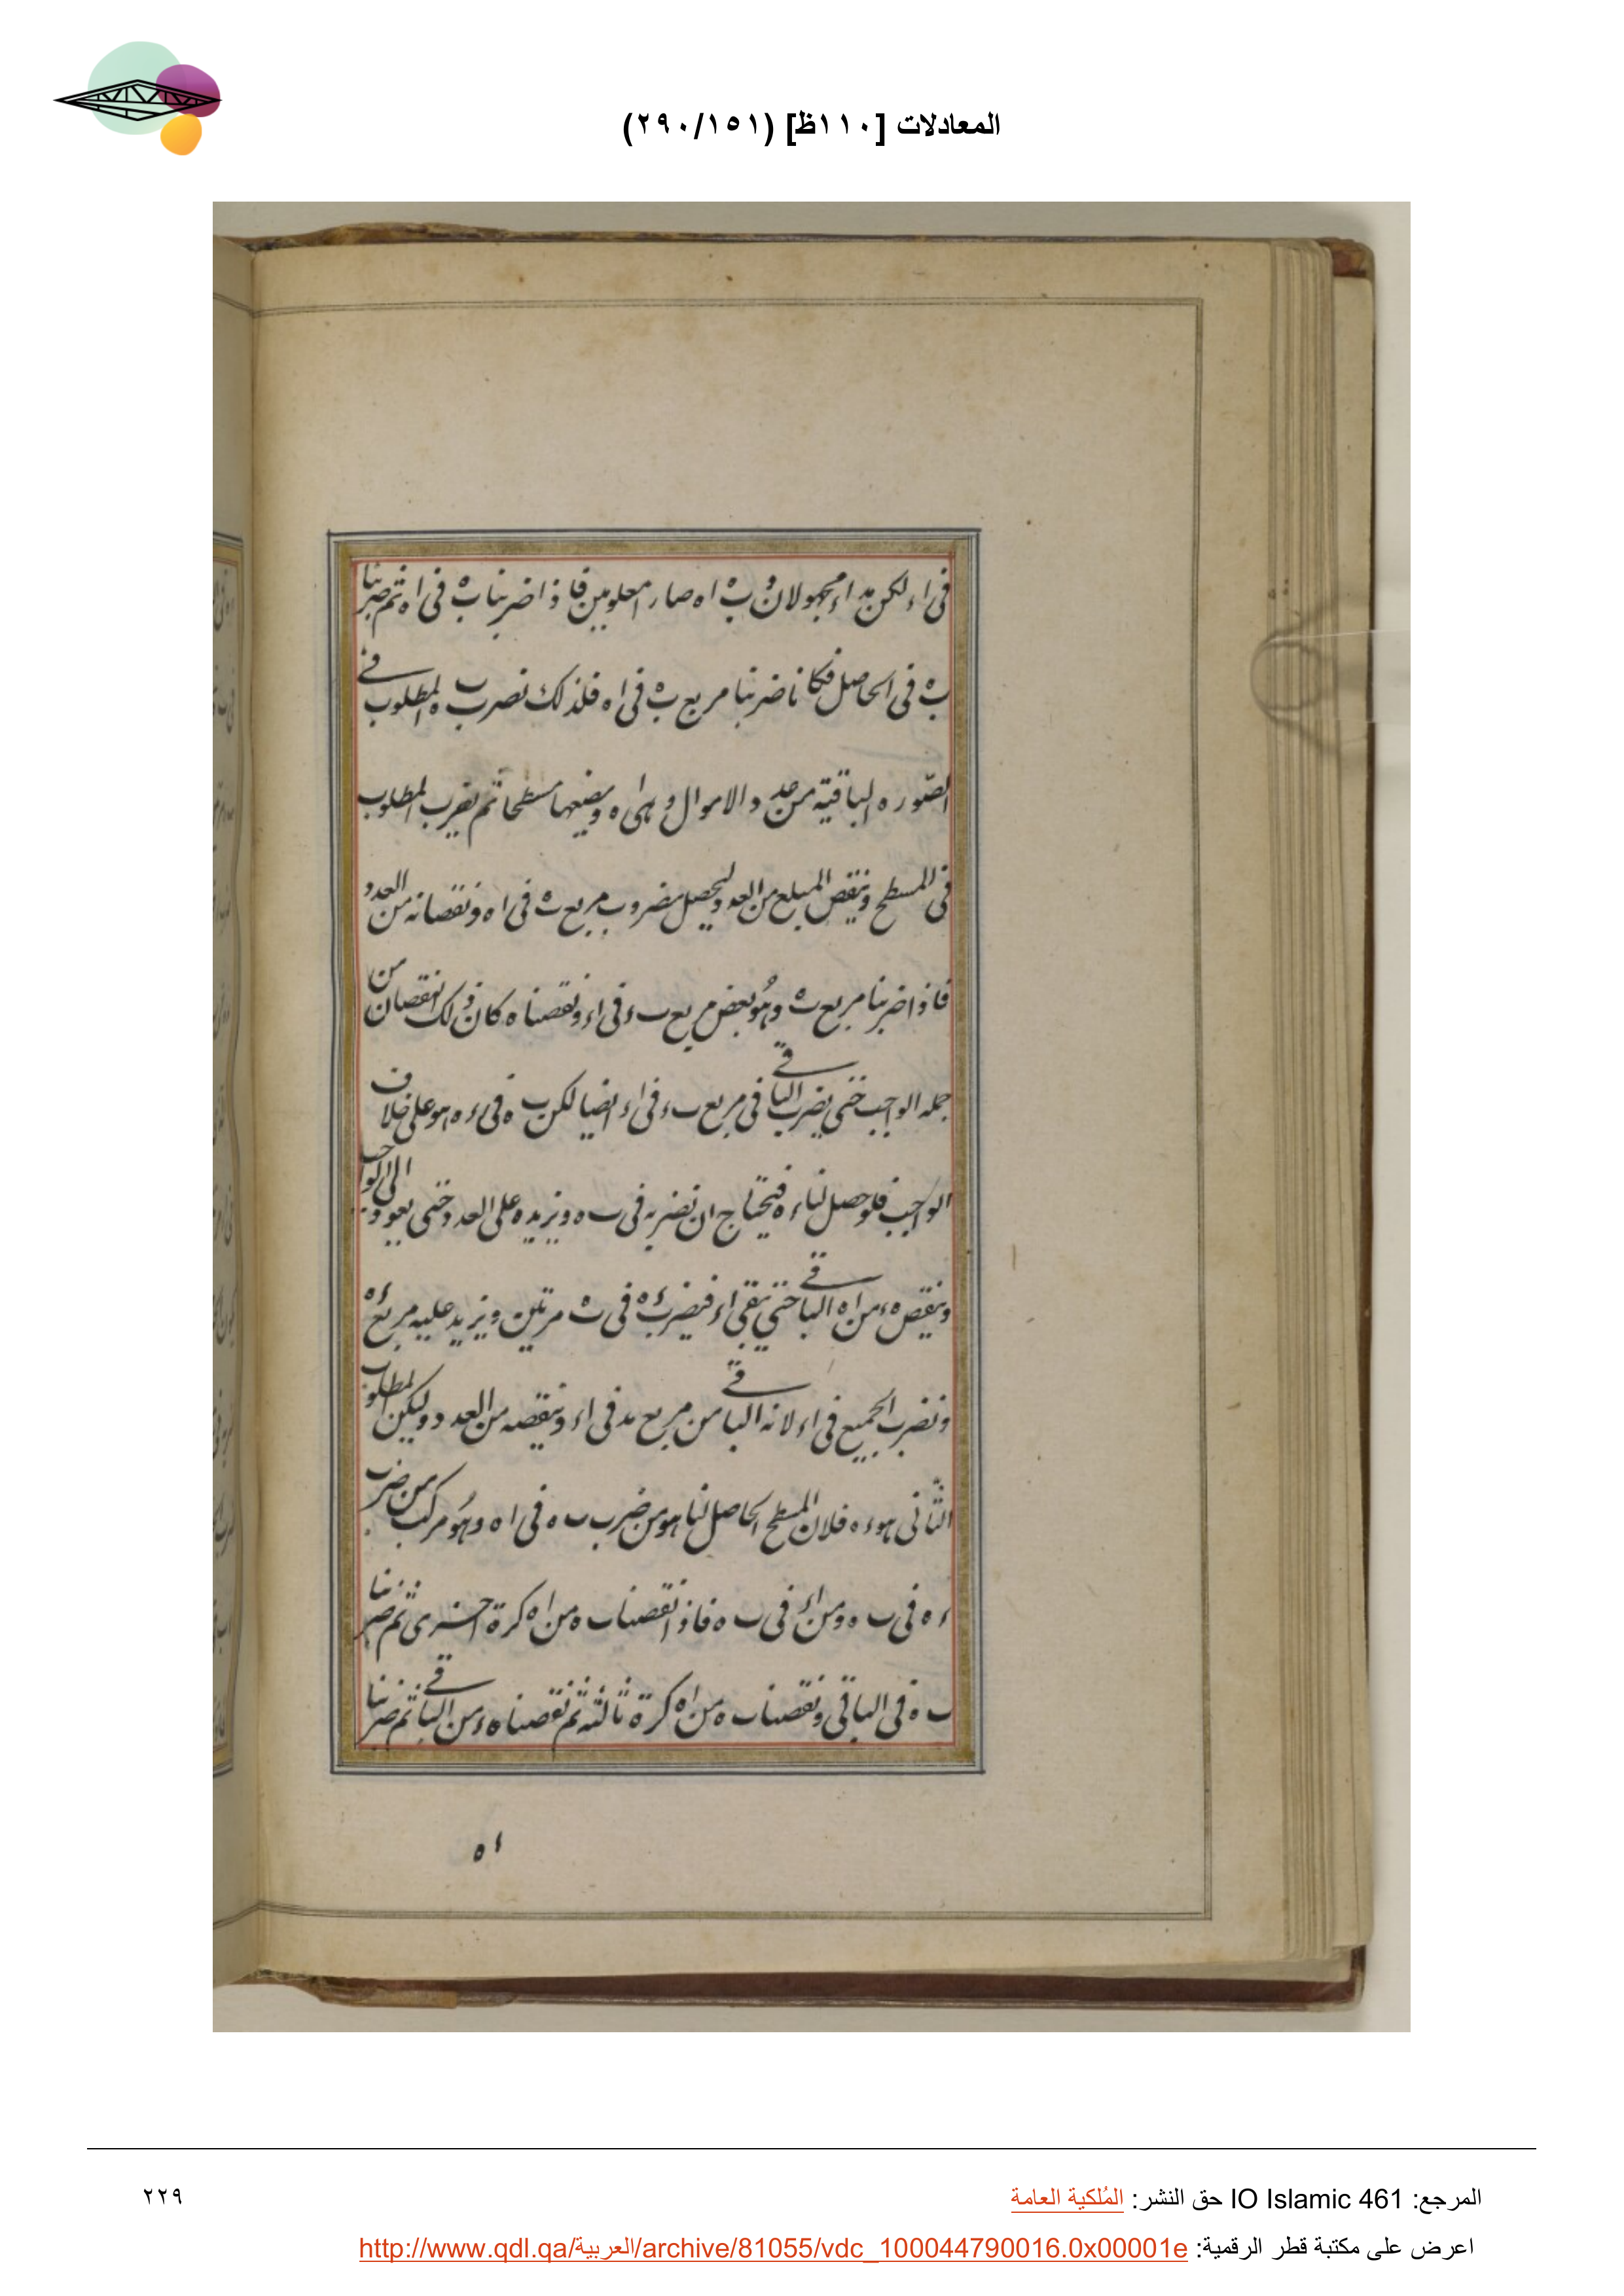 المعادلات [١١٠ظ] (٢٩٠/١٥١)
فى اء لكن مجهولان و ب ه اه صارا معلومين فاذا ضربنا ب ه فى اه ثم ضربنا
ب ه فى الحاصل فكانا ضربنا مربع ب ه فى اه فلذلك نضرب المطلوب فى
الصوره الباقية من عدد الاموال وهى اه ونضعها مسطحا ثم نضرب المطلوب
فى المسطح وننقص المبلغ من العدد ليحصل مضروب مربع ب ه فى اه ونقصانه من العدد
فاذا ضربنا مربع ب ه وهو بعض مربع ب ء فى اء ونقصناه كان ذلك النقصان من
جمله الواجب حتى يضرب الباقى فى مربع ب ء فى اء ايضا لكن ب ه فى ء ه هو على خلاف
الواجب فلو حصل لنا ء ه فيحتاج ان نضربه فى ب ه ونزيده على العدد حتى يعود الى الواجب
وننقص ه ء من اه الباقى حتى يبقى اء فيضرب ء ه فى ب ه مرتين ويزيد عليه مربع ء ه
ونضرب الجميع فى اء لانه الباقى من مربع فى اء وننقصه من العدد وليكن المطلوب
الثانى هو ء ه فلان المسطح الحاصل لنا هو من ضرب ب ه فى اه وهو مركب من ضرب
ء ه فى ب ه ومن اء فى ب ه فاذا نقصنا ب ه من اه كرة اخرى ثم ضربنا
ب ه فى الباقى ونقصنا ب ه من اه كرة ثالثه ثم نقصنا ه ء من الباقى ثم ضربنا
اه
المرجع: IO Islamic 461 حق النشر: المُلكية العامة
٢٢٩
اعرض على مكتبة قطر الرقمية: http://www.qdl.qa/العربية/archive/81055/vdc_100044790016.0x00001e